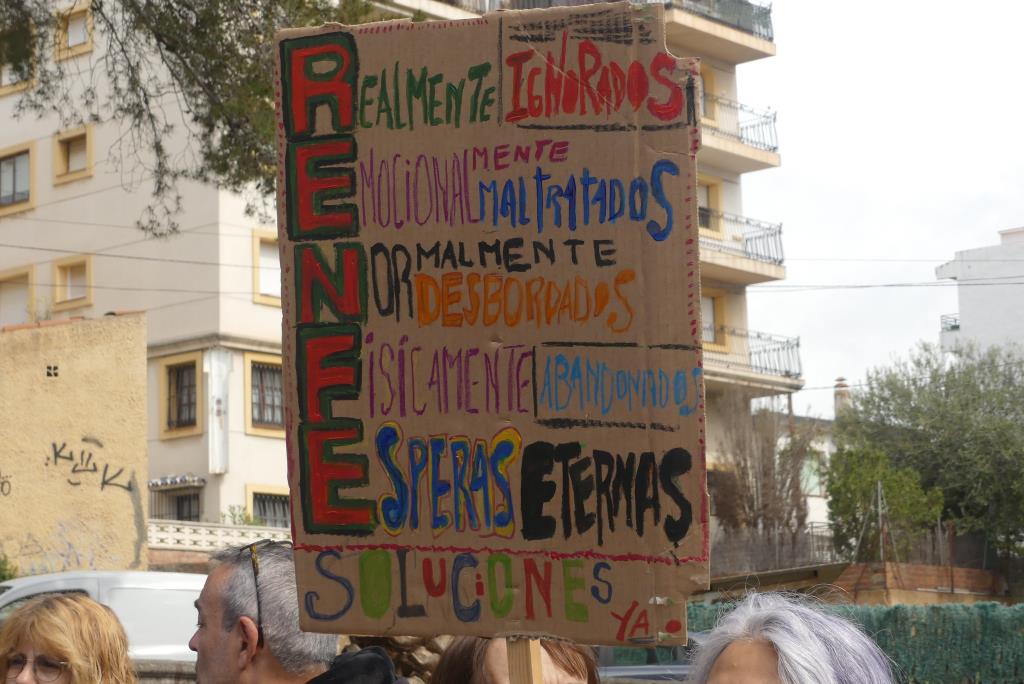 REALMENTE IGNORADOS
EMOCIONALMENTE
MALTRATADOS
NORMALMENTE
DESBORDADOS
FÍSICAMENTE ABANDONADOS
ESPERAS ETERNAS
SOLUCIONES
YA.